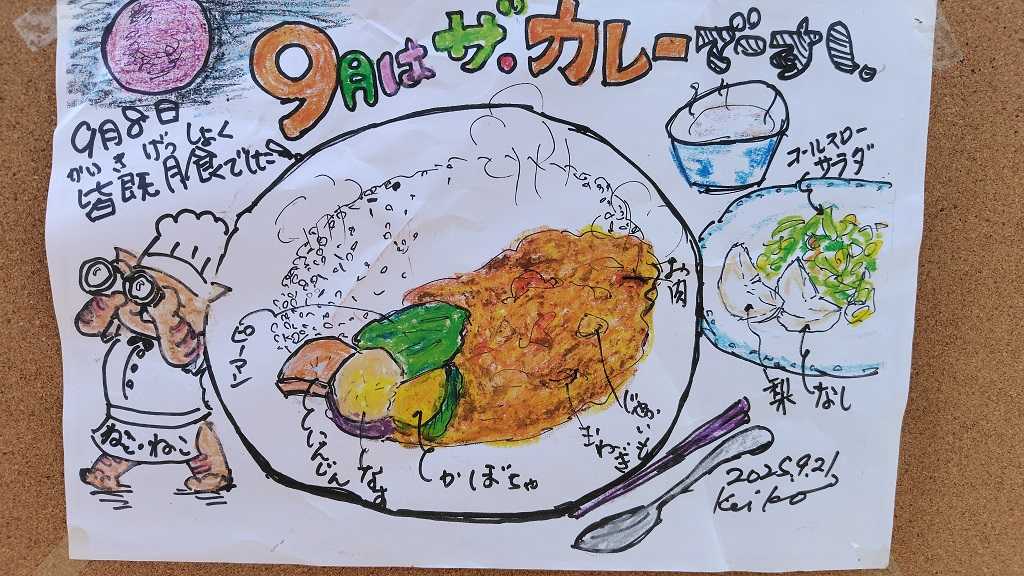 9月は ザ・カレーでーす!。
9月8日
かいきげっしょく
皆既月食でした
コールスロー
サラダ
お肉
ピーマン
梨 なし
じゃがいも
玉ねぎ
にんじん
なす
かぼちゃ
ねこ・ねこ
2025.9.21
Keiko